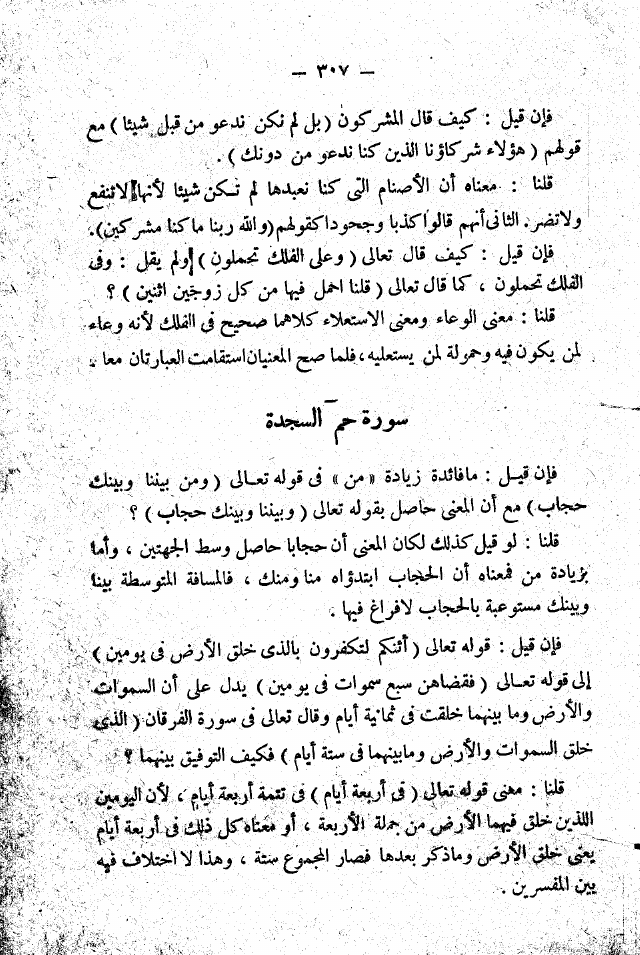 — ٣٠٧ —
فإن قيل : كيف قال المشركون ( بل لم نكن ندعو من قبل شيئا ) مع
قولهم ( هؤلاء شركاؤنا الذين كنا ندعو من دونك ) .
قلنا : معناه أن الأصنام التى كنا نعبدها لم تـكـن شيئا لأنها لاتنفع
ولاتضر. الثانى أنهم قالوا كذبا وجحودا كقولهم (والله ربنا ما كنا مشركين).
فإن قيل : كيف قال تعالى ( وعلى الفلك تحملون ) ولم يقل : وفى
الفلك تحملون ، كما قال تعالى ( قلنا احمل فيها من كل زوجين اثنين ) ؟
قلنا : معنى الوعاء ومعنى الاستعلاء كلاهما صحيح فى الفلك لأنه وعاء
لمن يكون فيه وحمولة لمن يستعليه ، فلما صح المعنيان استقامت العبارتان معا .
سورة حم السجدة
فإن قيـل : مافائدة زيادة «من» فى قوله تعـالى ( ومن بيننا وبينك
حجاب ) مع أن المعنى حاصل بقوله تعالى ( وبيننا وبينك حجاب ) ؟
قلنا : لو قيل كذلك لكان المعنى أن حجابا حاصل وسط الجهتين ، وأما
بزيادة من فمعناه أن الحجاب ابتدؤاه منا ومنك ، فالمسافة المتوسطة بيننا
وبينك مستوعبة بالحجاب لافراغ فيها .
فإن قيل : قوله تعالى ( أئنكم لتكفرون بالذى خلق الأرض فى يومين )
إلى قوله تعـالى ( فقضاهن سبع سموات فى يومين ) يدل على أن السموات
والأرض وما بينهما خلقت فى ثمانية أيام وقال تعالى فى سورة الفرقان ( الذى
خلق السموات والأرض ومابينهما فى ستة أيام ) فكيف التوفيق بينهما ؟
قلنا : معنى قوله تعالى ( فى أربعة أيام ) فى تتمة أربعة أيام ، لأن اليومين
اللذين خلق فيهما الأرض من جملة الأربعة ، أو معناه كل ذلك فى أربعة أيام
يعنى خلق الأرض وماذكر بعدها فصار المجموع ستة ، وهذا لا اختلاف فيه
بين المفسرين .